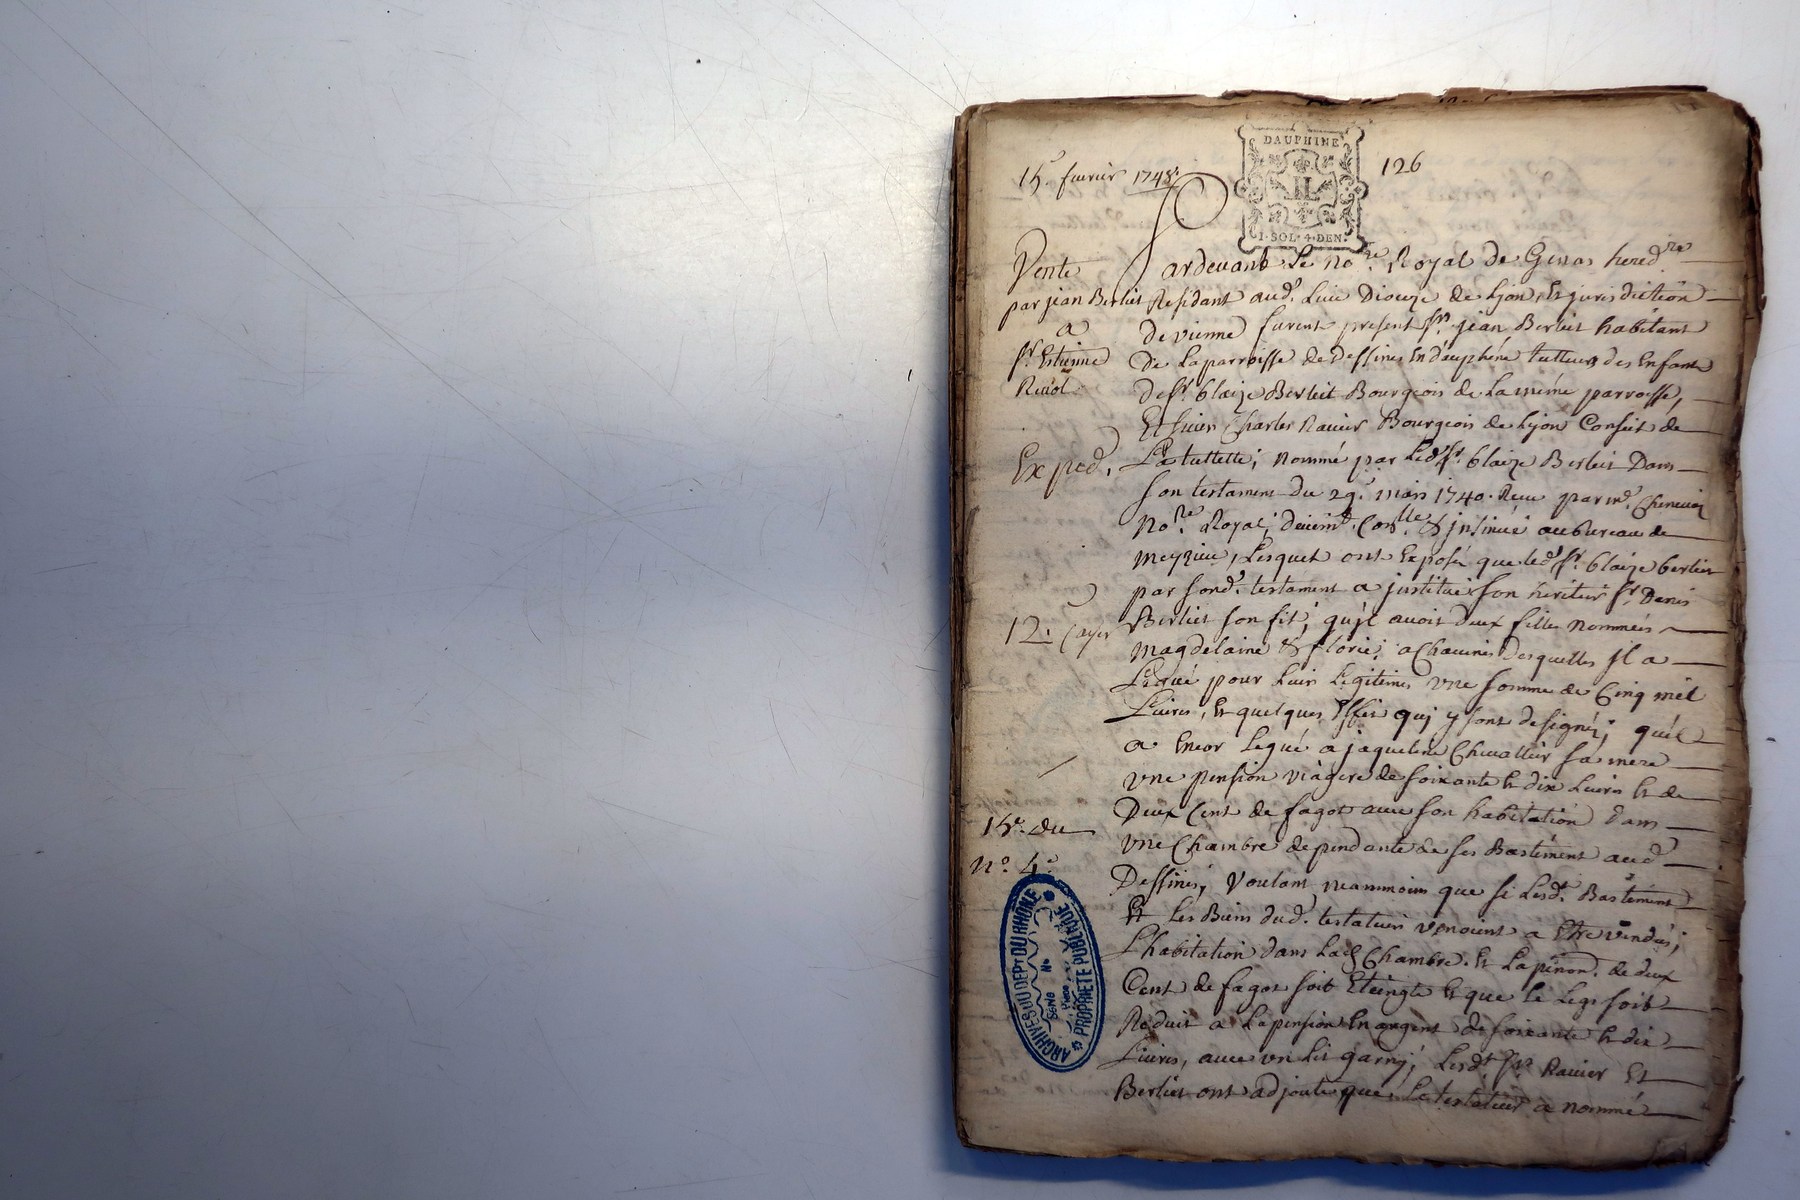 15e. fevrier 1748.
DAUPHINE
1·SOL·4·DEN.
126
Vente
par jean Berliet
a
sr. Estienne
Revol
Exped.
12e. Cayer
15e. du
no. 4e.
ARCHIVES DU DEPT DU RHÔNE
PROPRIETE PUBLIQUE
Série
No
Pièce
Pardevant Le nore. Royal de Genas hered.re
Residant aud. Lieu Dioceze de Lyon, et jurisdiction
de vienne furent present sr. jean Berliet habitant
De La parroisse de Dessines en dauphiné tutteur des Enfants
de sr. blaize Berliet Bourgeois de La méme parroisse,
Et sieur Charles Ravier Bourgeois de Lyon Conseit de
La tuttelle; nommé par Led. sr. blaize Berliet Dans
son testament du 29e. mars 1740. Receu par me.
nore. Royal, deuemt. Conllé & jnsinué au bureau de
meyzieu, Lesquels ont Exposé que led. sr. blaize berliet
par sond. testament a jnstitué son heritier sr. Denis
Berliet son fils; qu'jl avoit deux filles nommées
magdelaine & florie; a Chacunes desquelles jl a
Legué pour Leurs Legitimes une somme de Cinq mil
Livres, et quelques Effets quj y sont designés; qu'il
a Encor Legué a jaqueline Chevallier sa mere
une pension viagere de soixante et dix Livres et de
Deux Cent de fagot avec son habitation dans
une Chambre dependante de ses Bastiments aud.
Dessines; voulant neammoins que si Lesdt. Bastiment
Et Les Biens dud. testateur venoient a Etre vendus;
L'habitation dans Lad. Chambre. Et La penon. de deux
Cent de fagot soit Eteingte et que le Legs soit
Reduit a La pension En argent de soixante et dix
Livres, avec un Lit garnj; Lesdt. srs. Ravier Et
Berliet ont adjouté que Le testateur a nommé